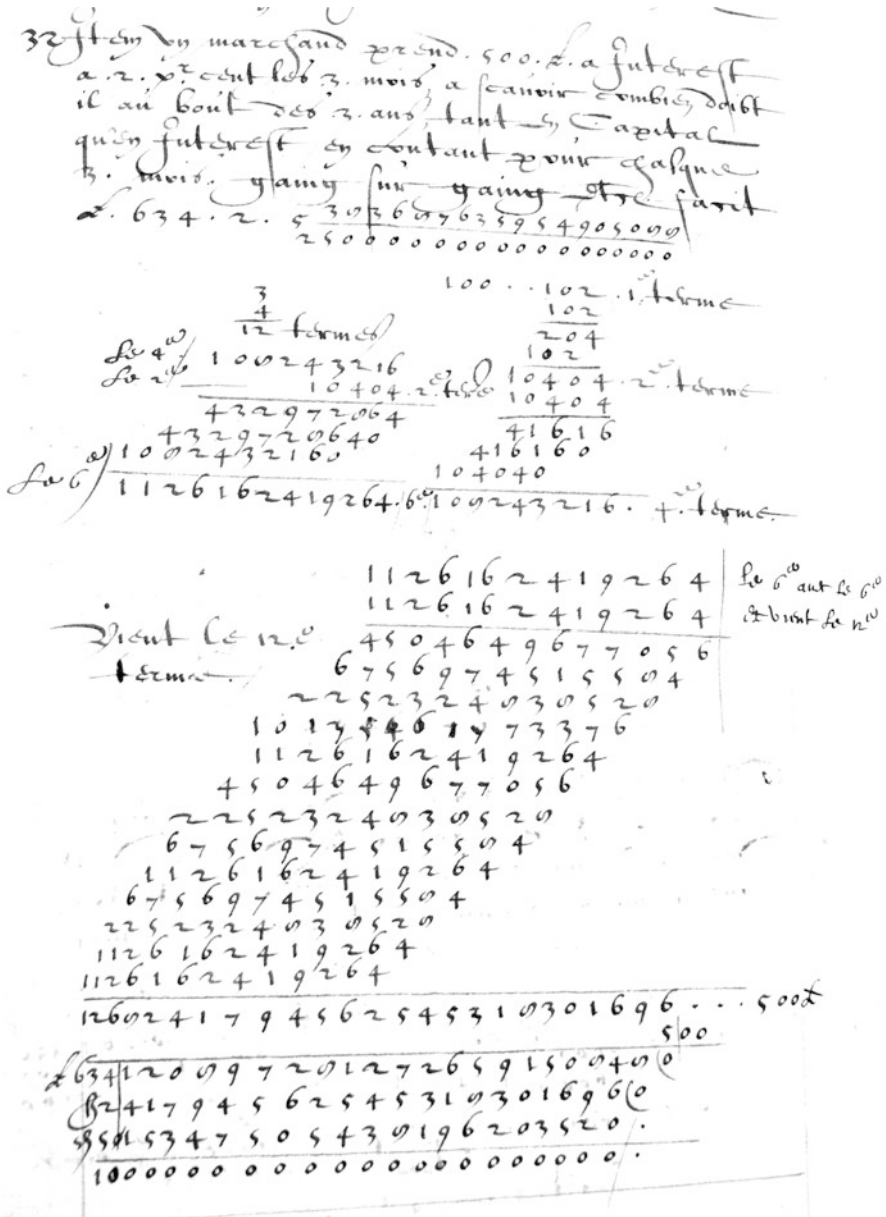 32 Item un marchand prend. 500. £. a Interest
a. 2. pr cent les 3. mois, a scavoir combien doibt
il au bout des 3. ans, tant en Capital
qu'en Interest en contant pour chasque
3. mois. gaing sur gaing fasit
£. 634. 2. 5 383687635954905088
2500000000000000000
100 . . 102 . 1e terme
3
4
12 termes
102
204
102
Le 4e 108243216
Le 2e 10404. 2e
10404. 2e terme
10404
432972864
4329728640
1082432160
41616
416160
104040
Le 6e 1126162419264. 6e
108243216. 4e terme.
1126162419264 Le 6e aut Le 6e
1126162419264 et vient Le 12e
Vient Le 12.e
terme.
4504649677056
6756974515584
2252324838528
10135461773376
1126162419264
4504649677056
2252324838528
6756974515584
1126162419264
6756974515584
2252324838528
1126162419264
1126162419264
1268241794562545318301696 . . . 500£
500
£634 120897281272659150848(0
ß2 41794562545318301696(0
₰5 015347505438196203520.
100000000000000000000.